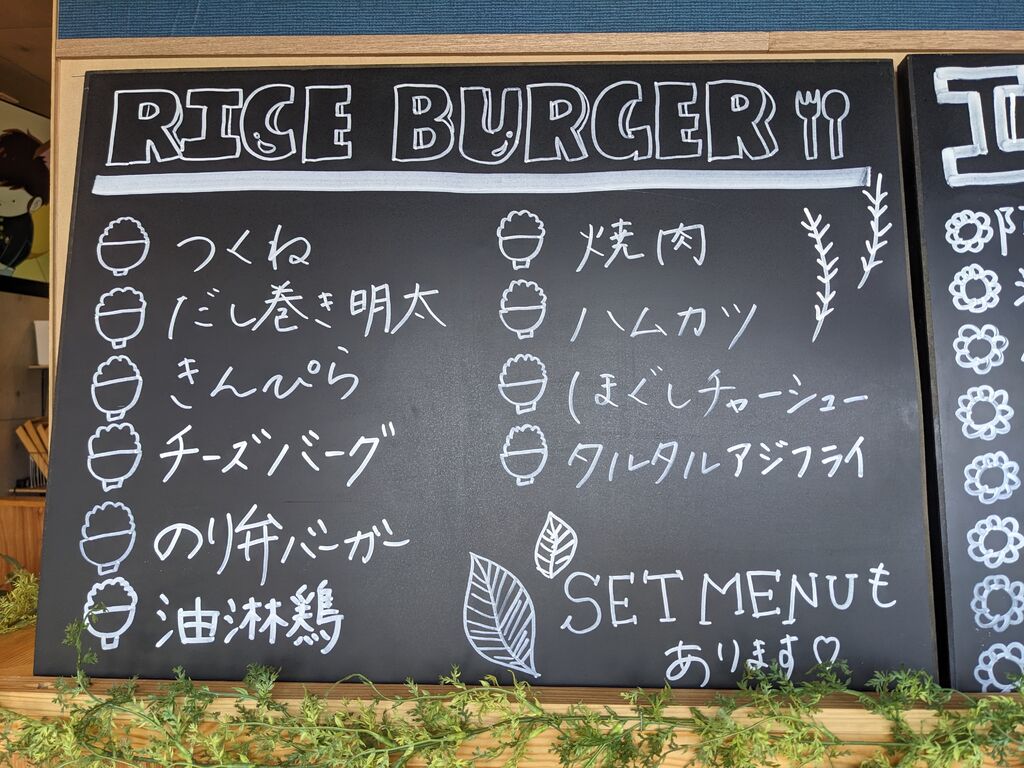 RICE BURGER
つくね
だし巻き明太
きんぴら
チーズバーグ
のり弁バーガー
油淋鶏
焼肉
ハムカツ
ほぐしチャーシュー
タルタルアジフライ
SET MENUも
あります♡